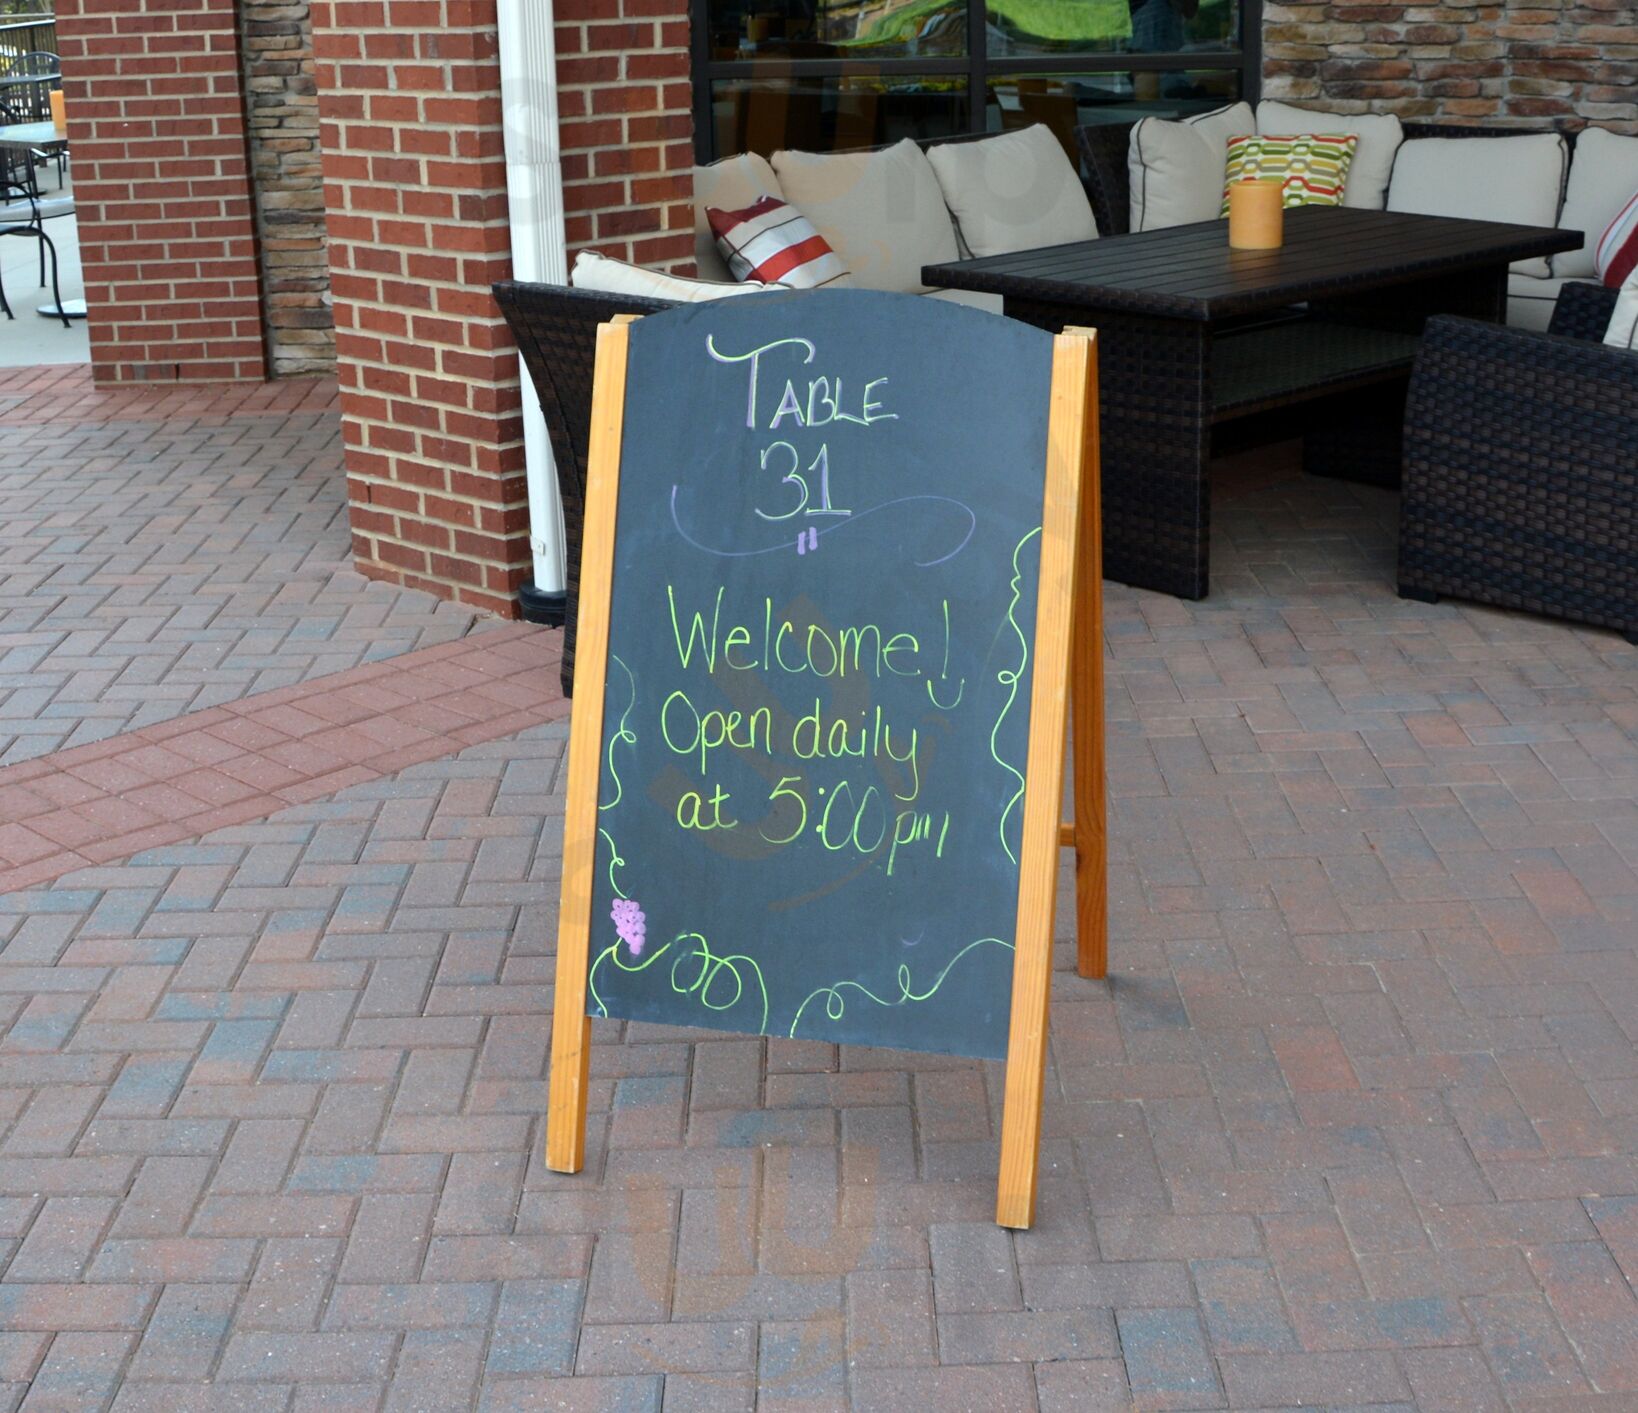 TABLE
31
Welcome!
Open daily
at 5:00pm